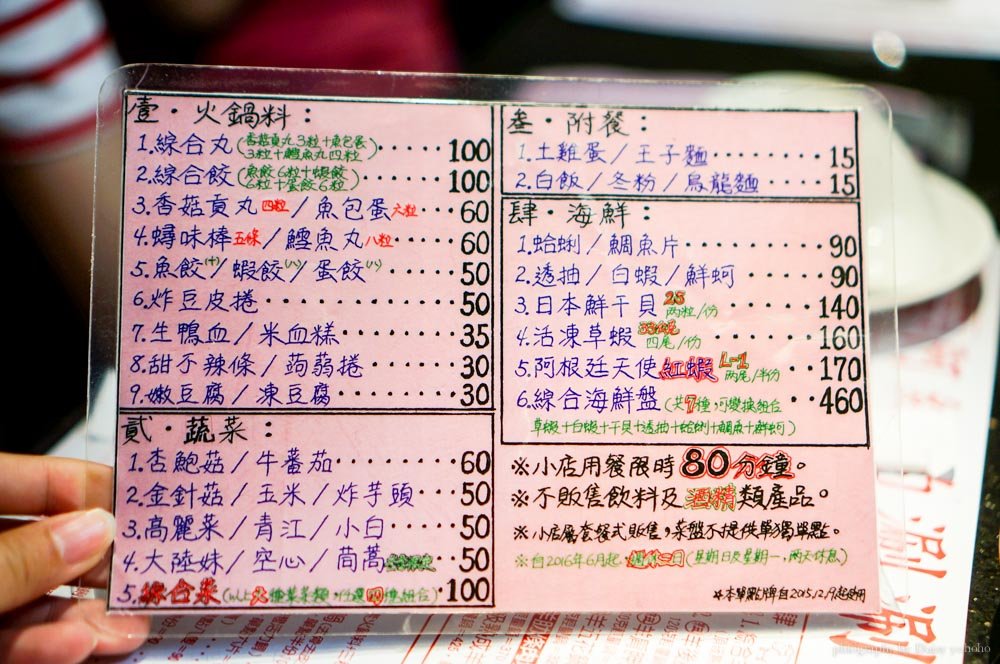 壹·火鍋料：
1.綜合丸(香菇貢丸3粒+魚包蛋3粒+鱈魚丸四粒)·····100
2.綜合餃(魚餃6粒+蝦餃6粒+蛋餃6粒)·····100
3.香菇貢丸四粒/魚包蛋六粒···60
4.蟳味棒五條/鱈魚丸八粒····60
5.魚餃(十)/蝦餃(八)/蛋餃(八)·····50
6.炸豆皮捲··········50
7.生鴨血/米血糕······35
8.甜不辣條/蒟蒻捲·····30
9.嫩豆腐/凍豆腐······30
貳·蔬菜：
1.杏鮑菇/牛蕃茄·····60
2.金針菇/玉米/炸芋頭···50
3.高麗菜/青江/小白····50
4.大陸妹/空心/茼萵··50
5.綜合菜(以上六種葉菜類,任選四樣組合)·100
叁·附餐：
1.土雞蛋/王子麵······15
2.白飯/冬粉/烏龍麵···15
肆·海鮮：
1.蛤蜊/鯛魚片·······90
2.透抽/白蝦/鮮蚵·····90
3.日本鮮干貝2S兩粒/份··140
4.活凍草蝦四尾/份···160
5.阿根廷天使紅蝦L-1兩尾/半份··170
6.綜合海鮮盤(共7種,可變換組合··460
草蝦+白蝦+干貝+透抽+蛤蜊+鯛魚+鮮蚵)
※小店用餐限時80分鐘。
※不販售飲料及酒精類產品。
※小店屬套餐式販售,菜盤不提供單獨單點。
※自2016年6月起,週休二日(星期日及星期一,兩天休息)
☆本單點牌自2015.12/9起啟用